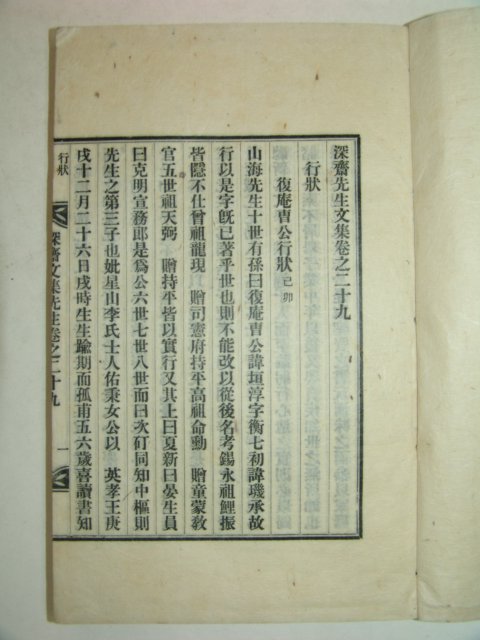 深齋先生文集卷之二十九
行狀
復庵曺公行狀 己卯
山海先生十世有孫曰復庵曺公諱垣淳字衡七初諱璣承故
行以是字旣已著乎世也則不能改以從後名考錫永祖鯉振
皆隱不仕曾祖龍現 贈司憲府持平高祖命勳 贈童蒙敎
官五世祖天弼 贈持平皆以實行又其上曰夏新曰晏生員
曰克明宣務郎是爲公六世七世八世而曰次矴同知中樞則
先生之第三子也妣星山李氏士人佑秉女公以 英孝王庚
戌十二月二十六日戌時生生踰期而孤甫五六歲喜讀書知
行狀
深齋先生文集卷之二十九
一